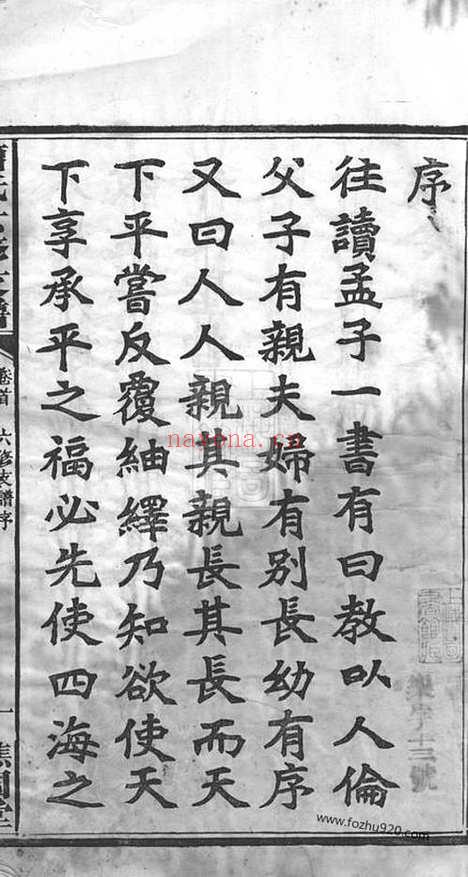 序
往讀孟子一書有曰教以人倫
父子有親夫婦有別長幼有序
又曰人人親其親長其長而天
下平嘗反覆紬繹乃知欲使天
下享承平之福必先使四海之
卷首 六修支譜序
一
naxona.cn
www.fozhu920.com